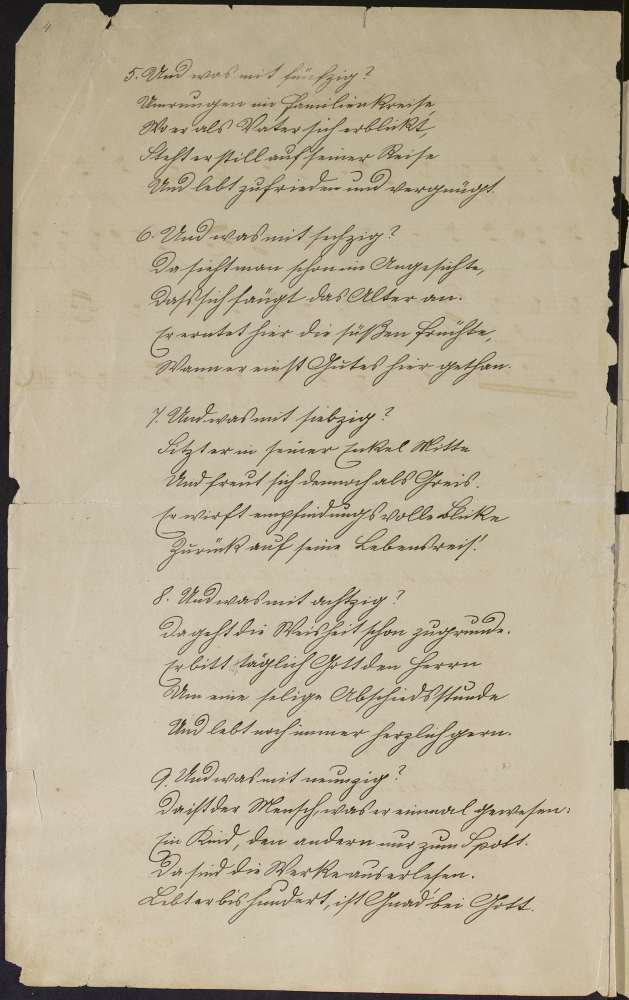 4
5. Und was mit fünfzig?
Umrungen im Familienkreise,
Wo er als Vater sich erblickt,
Steht er still auf seiner Reise
Und lebt zufrieden und vergnügt.
6. Und was mit sechzig?
Da sieht man schon im Angesichte,
Dass sich fängt das Alter an.
Er erntet hier die süßen Früchte,
Wann er einst Gutes hier gethan.
7. Und was mit siebzig?
Sitzt er in seiner Enkel Mitte
Und freut sich dennoch als Greis.
Er wirft empfindungsvolle Blicke
Zurück auf seine Lebensreis!
8. Und was mit achtzig?
Da geht die Weisheit schon zugrunde.
Er bitt täglich Gott den Herrn
Um eine selige Abschiedsstunde
Und lebt noch immer herzlich gern.
9. Und was mit neunzig?
Da ist der Mensch, was er einmal gewesen:
Ein Kind, den andern nur zum Spott.
Da sind die Werke auserlesen.
Lebt er bis hundert, ist Gnad' bei Gott.